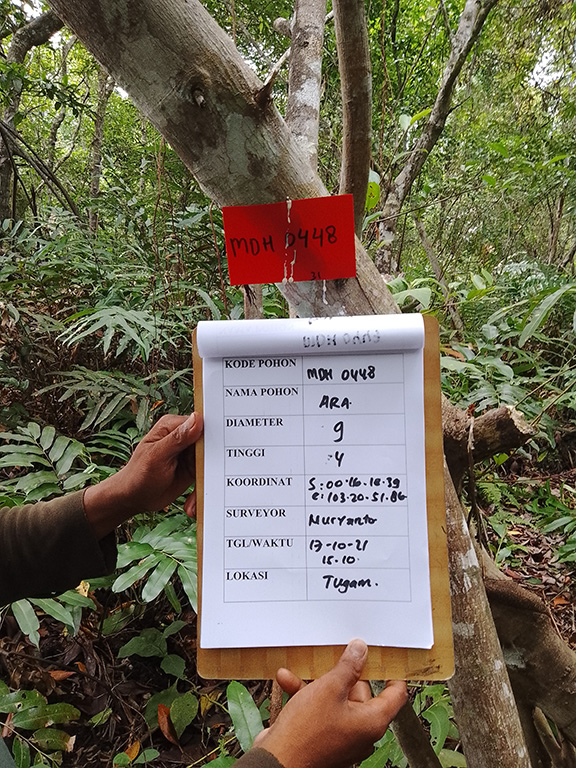 MDH 0448
31
KODE POHON MDH 0448
NAMA POHON ARA
DIAMETER 9
TINGGI 4
KOORDINAT S:00.16.18.39
E:103.20.51.86
SURVEYOR Muryanto
TGL/WAKTU 17-10-21
15.10.
LOKASI Tugam.